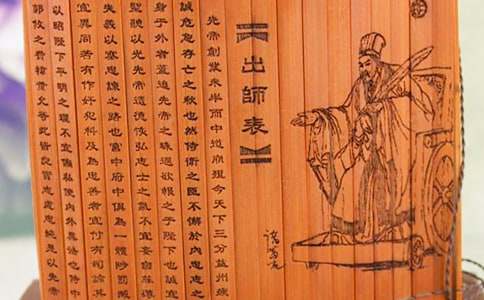 出師表
諸葛亮
先帝創業未半而中道崩殂今天下三分益州疲
誠危急存亡之秋也然侍衛之臣不懈於內忠志之
身於外者蓋追先帝之殊遇欲報之于陛下也誠宜
聖聽以光先帝遺德恢弘志士之氣不宜妄自菲薄
失義以塞忠諫之路也宮中府中俱為一體陟罰臧
宜異同若有作奸犯科及為忠善者宜付有司論其
以昭陛下平明之理不宜偏私使內外異法也侍中
郭攸之費禕董允等此皆良實志慮忠純是以先帝